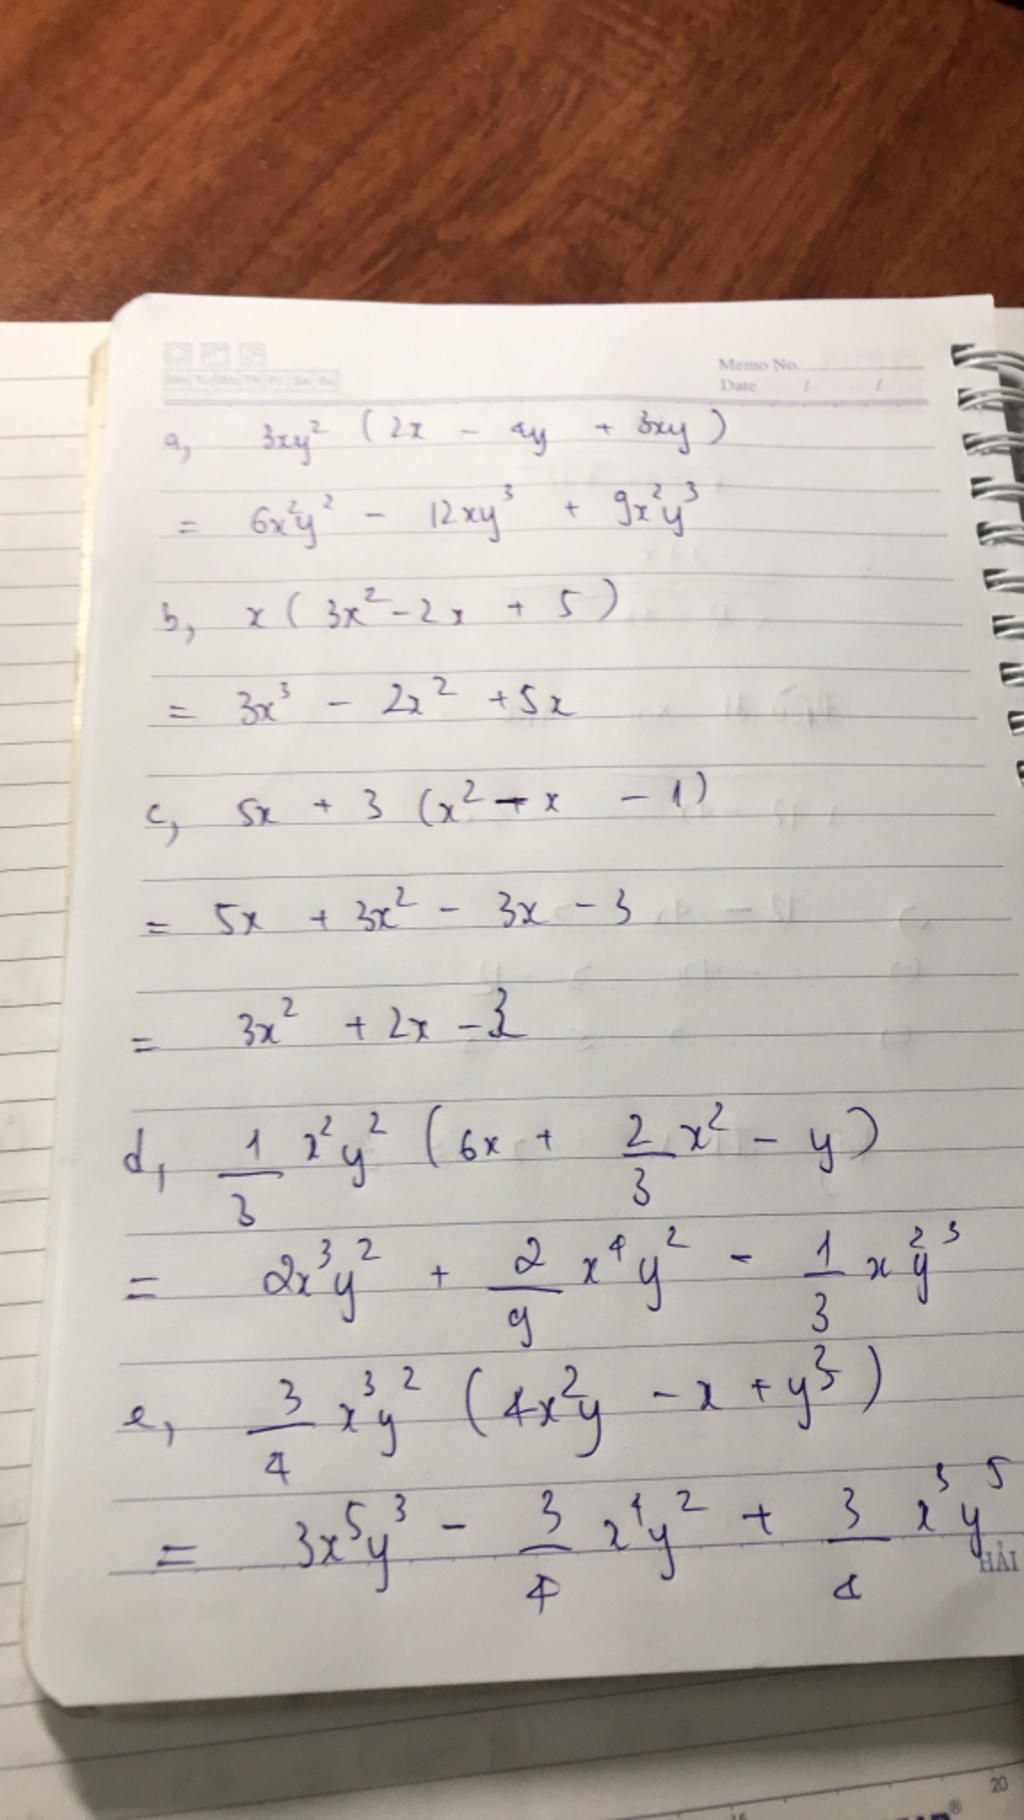 Memo No.
Date / /
a, 3xy² (2x - 4y + 3xy)
= 6x²y² - 12xy³ + 9x²y³
b, x(3x² - 2x + 5)
= 3x³ - 2x² + 5x
c, 5x + 3 (x² - x - 1)
= 5x + 3x² - 3x - 3
= 3x² + 2x - 3
d, 1/3 x²y² (6x + 2/3 x² - y)
= 2x³y² + 2/9 x⁴y² - 1/3 x²y³
e, 3/4 x³y² (4x²y - x + y³)
= 3x⁵y³ - 3/4 x⁴y² + 3/4 x³y⁵
HẢI
20